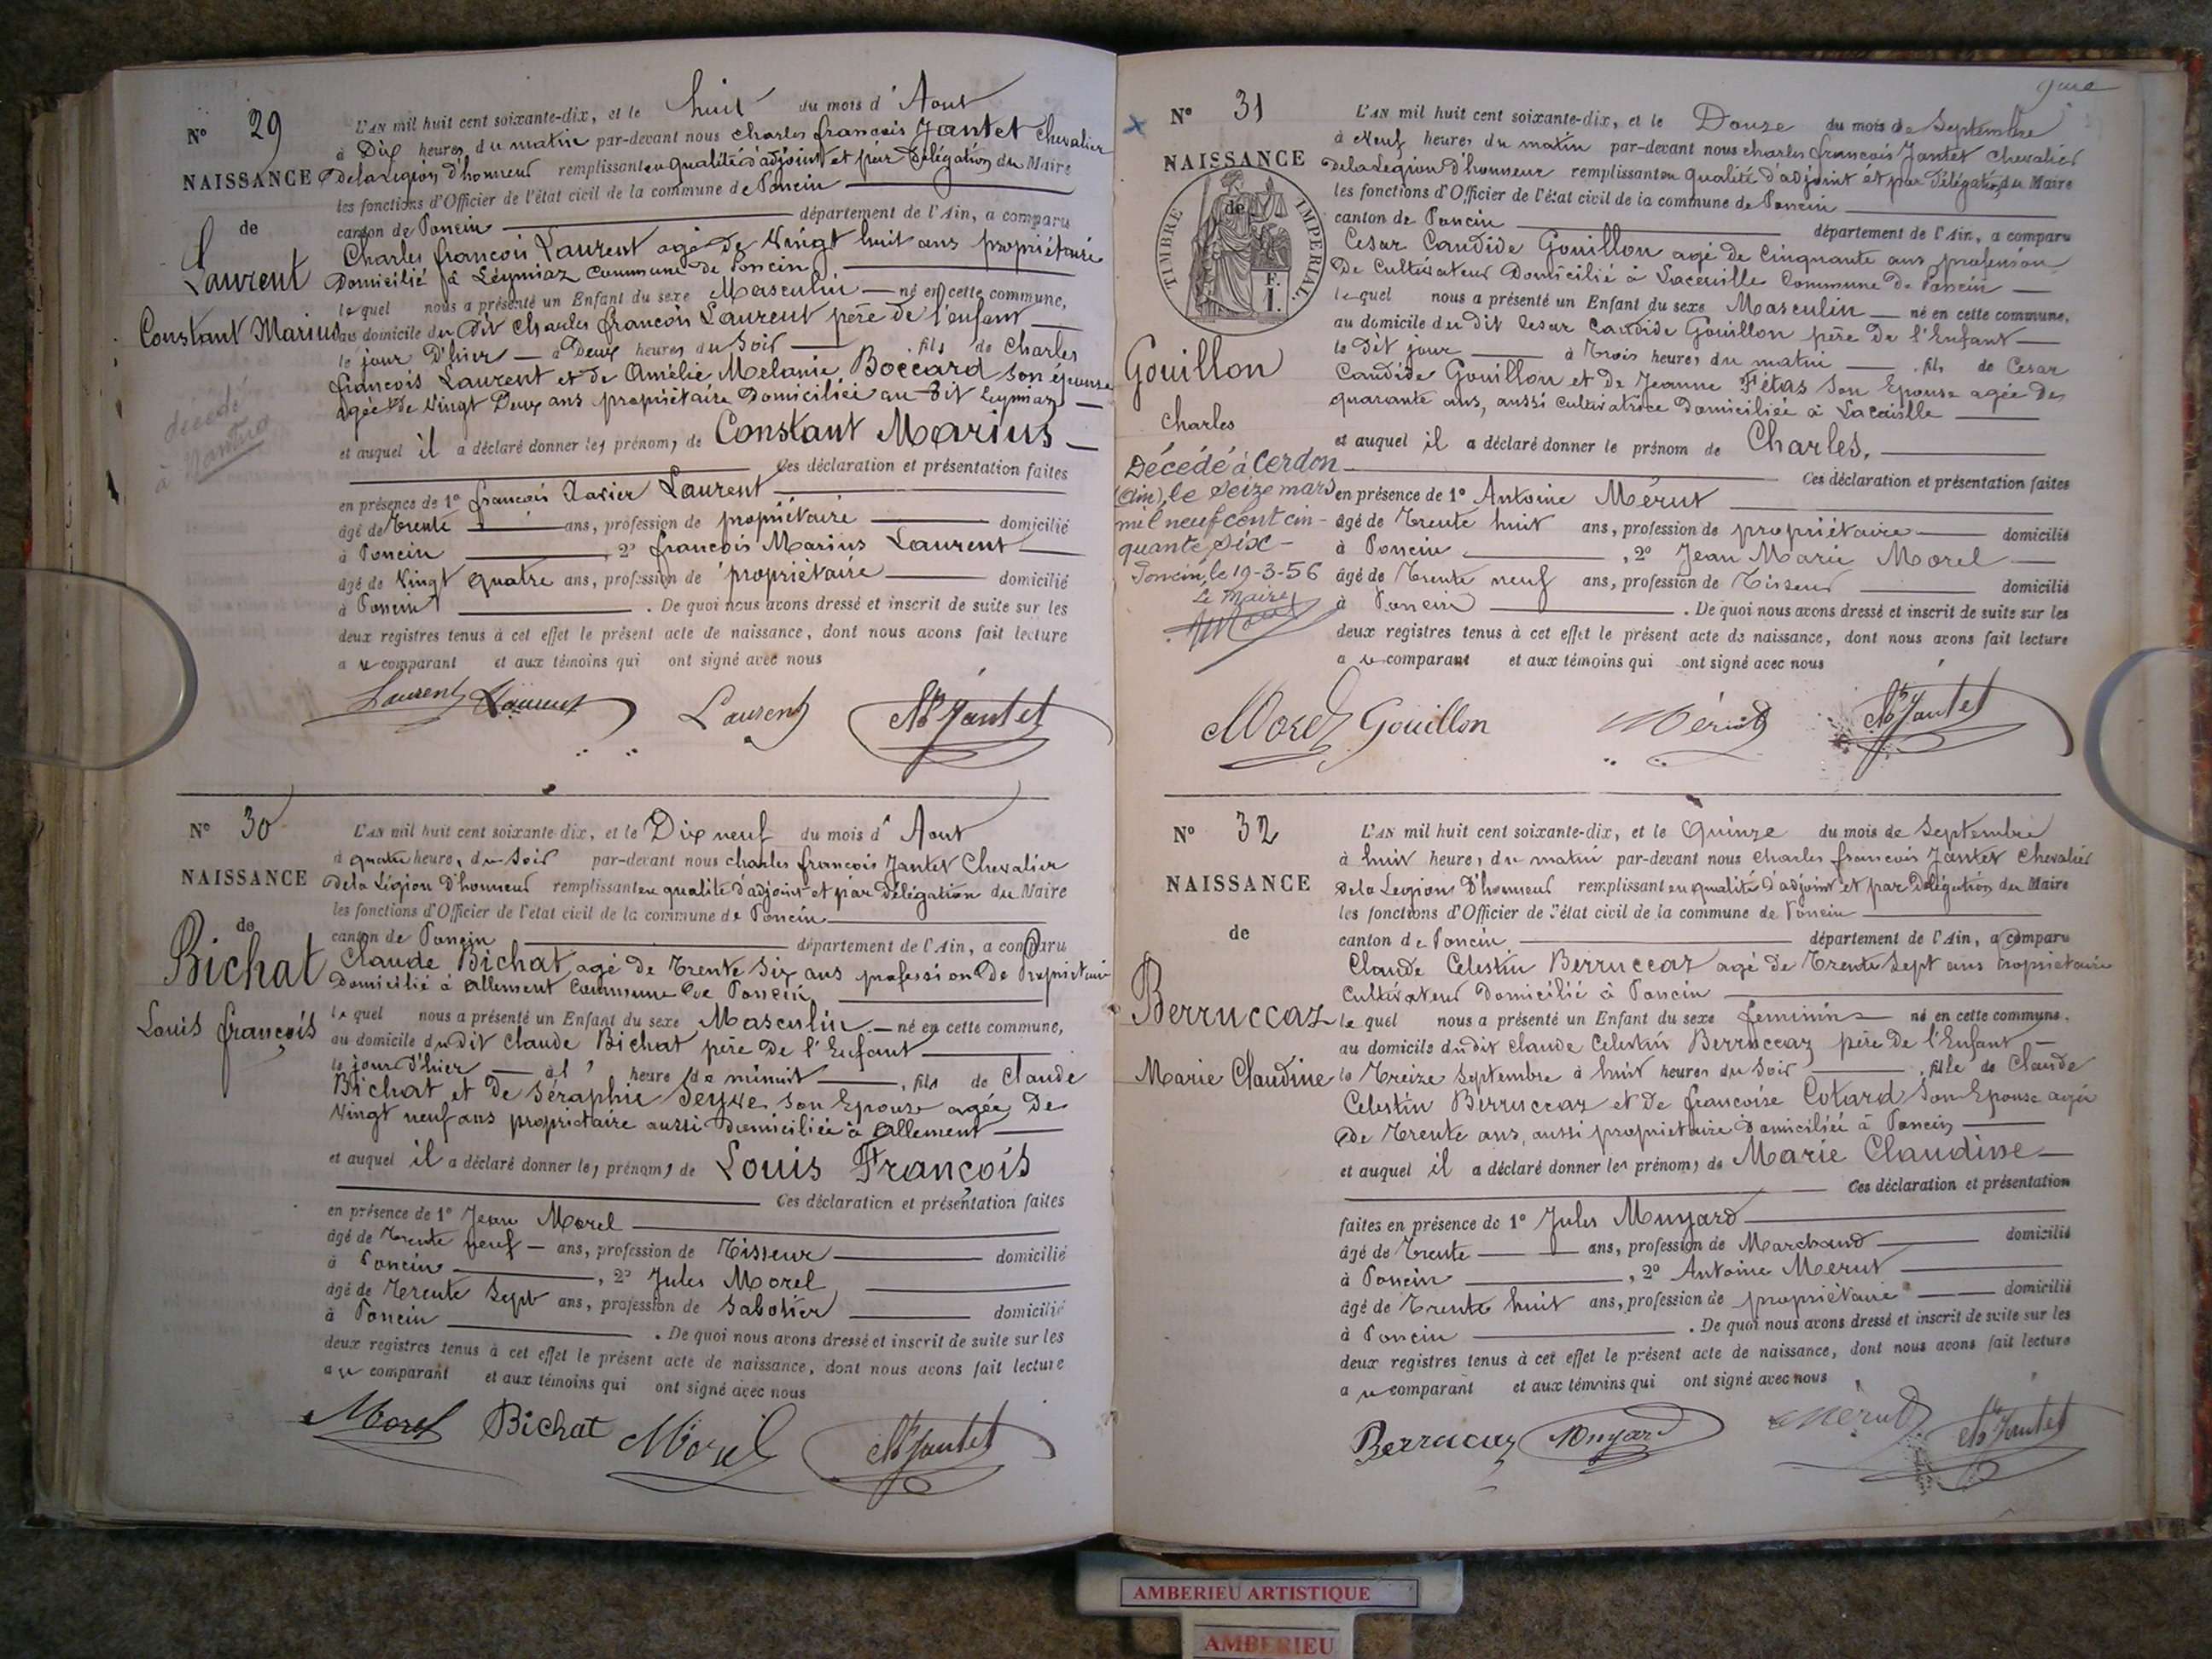 N° 29
NAISSANCE
de
Laurent
Constant Marius
décédé
à Nantua
L'AN mil huit cent soixante-dix, et le huit du mois d'Aout
à Dix heures du matin par-devant nous charles francois Jantet Chevalier
de la Legion d'honneur remplissant en qualité d'adjoint et par délégation du Maire
les fonctions d'Officier de l'état civil de la commune de Poncin
canton de Poncin département de l'Ain, a comparu
Charles francois Laurent agé de Vingt huit ans propriétaire
Domicilié à Leymiaz Commune de Poncin
lequel nous a présenté un Enfant du sexe Masculin né en cette commune,
au domicile du Dit Charles francois Laurent père de l'enfant
le jour D'hier à Deux heures du Soir fils de Charles
francois Laurent et de Amélie Melanie Boccard son épouse
agée de Vingt Deux ans propriétaire Domiciliée au Dit Leymiaz
et auquel il a déclaré donner les prénoms de Constant Marius
Ces déclaration et présentation faites
en présence de 1° francois Xavier Laurent
âgé de Trente ans, profession de propriétaire domicilié
à Poncin, 2° francois Marius Laurent
âgé de Vingt quatre ans, profession de propriétaire domicilié
à Poncin. De quoi nous avons dressé et inscrit de suite sur les
deux registres tenus à cet effet le présent acte de naissance, dont nous avons fait lecture
au comparant et aux témoins qui ont signé avec nous
Laurent Laurent Laurent Ch Jantet
N° 30
NAISSANCE
de
Bichat
Louis francois
L'AN mil huit cent soixante dix, et le Dix neuf du mois d'Aout
à quatre heures du Soir par-devant nous charles francois Jantet Chevalier
de la Légion D'honneur remplissant en qualité d'adjoint et par Délégation du Maire
les fonctions d'Officier de l'état civil de la commune de Poncin
canton de Poncin département de l'Ain, a comparu
Claude Bichat agé de Trente Six ans profession De Proprietaire
Domicilié à Allement Commune De Poncin
lequel nous a présenté un Enfant du sexe Masculin né en cette commune,
au domicile du dit Claude Bichat père De l'Enfant
le jour D'hier à l' heure de minuit, fils de Claude
Bichat et de Séraphie Seyve son Epouse agée De
Vingt neuf ans proprietaire aussi Domiciliée à Allement
et auquel il a déclaré donner les prénoms de Louis François
Ces déclaration et présentation faites
en présence de 1° Jean Morel
âgé de Trente neuf ans, profession de Tisseur domicilié
à Poncin, 2° Jules Morel
âgé de Trente Sept ans, profession de Sabotier domicilié
à Poncin. De quoi nous avons dressé et inscrit de suite sur les
deux registres tenus à cet effet le présent acte de naissance, dont nous avons fait lecture
au comparant et aux témoins qui ont signé avec nous
Morel Bichat Morel Ch Jantet
N° 31
NAISSANCE
de
TIMBRE IMPERIAL
E.
I.
Gouillon
Charles
Décédé à Cerdon
(Ain), le seize mars
mil neuf cent cin-
quante six
Poncin, le 19-3-56
Le Maire
L'AN mil huit cent soixante-dix, et le Douze du mois de Septembre
à Neuf heures du matin par-devant nous charles francois Jantet Chevalier
de la Légion D'honneur remplissant en qualité d'adjoint et par Délégation du Maire
les fonctions d'Officier de l'état civil de la commune de Poncin
canton de Poncin département de l'Ain, a comparu
Cesar Candide Gouillon agé de Cinquante ans profession
De Cultivateur Domicilié à Commune De Poncin
lequel nous a présenté un Enfant du sexe Masculin né en cette commune,
au domicile du dit Cesar Candide Gouillon père De l'Enfant
le Dit jour à Trois heures du matin, fils de Cesar
Candide Gouillon et De Jeanne Fétas Son Epouse agée De
quarante ans, aussi Cultivatrice Domiciliée à
et auquel il a déclaré donner le prénom de Charles.
Ces déclaration et présentation faites
en présence de 1° Antoine Mérut
âgé de Trente huit ans, profession de propriétaire domicilié
à Poncin, 2° Jean Marie Morel
âgé de Trente neuf ans, profession de Tisseur domicilié
à Poncin. De quoi nous avons dressé et inscrit de suite sur les
deux registres tenus à cet effet le présent acte de naissance, dont nous avons fait lecture
au comparant et aux témoins qui ont signé avec nous
Morel Gouillon Mérut Ch Jantet
N° 32
NAISSANCE
de
Berruccaz
Marie Claudine
L'AN mil huit cent soixante-dix, et le Quinze du mois de Septembre
à huit heures du matin par-devant nous charles francois Jantet Chevalier
de la Legion D'honneur remplissant en qualité d'adjoint et par Délégation du Maire
les fonctions d'Officier de l'état civil de la commune de Poncin
canton de Poncin département de l'Ain, a comparu
Claude Celestin Berruccaz agé de Trente Sept ans proprietaire
Cultivateur Domicilié à Poncin
lequel nous a présenté un Enfant du sexe feminin né en cette commune,
au domicile du dit Claude Celestin Berruccaz père De l'Enfant
le Treize Septembre à huit heures du Soir, fille de Claude
Celestin Berruccaz et De francoise Cotard Son Epouse agée
De Trente ans, aussi proprietaire Domiciliée à Poncin
et auquel il a déclaré donner les prénoms de Marie Claudine
Ces déclaration et présentation
faites en présence de 1° Jules Muyard
âgé de Trente ans, profession de Marchand domicilié
à Poncin, 2° Antoine Merut
âgé de Trente huit ans, profession de propriétaire domicilié
à Poncin. De quoi nous avons dressé et inscrit de suite sur les
deux registres tenus à cet effet le présent acte de naissance, dont nous avons fait lecture
au comparant et aux témoins qui ont signé avec nous
Berrucaz Muyard Merut Ch Jantet
AMBERIEU ARTISTIQUE
AMBERIEU